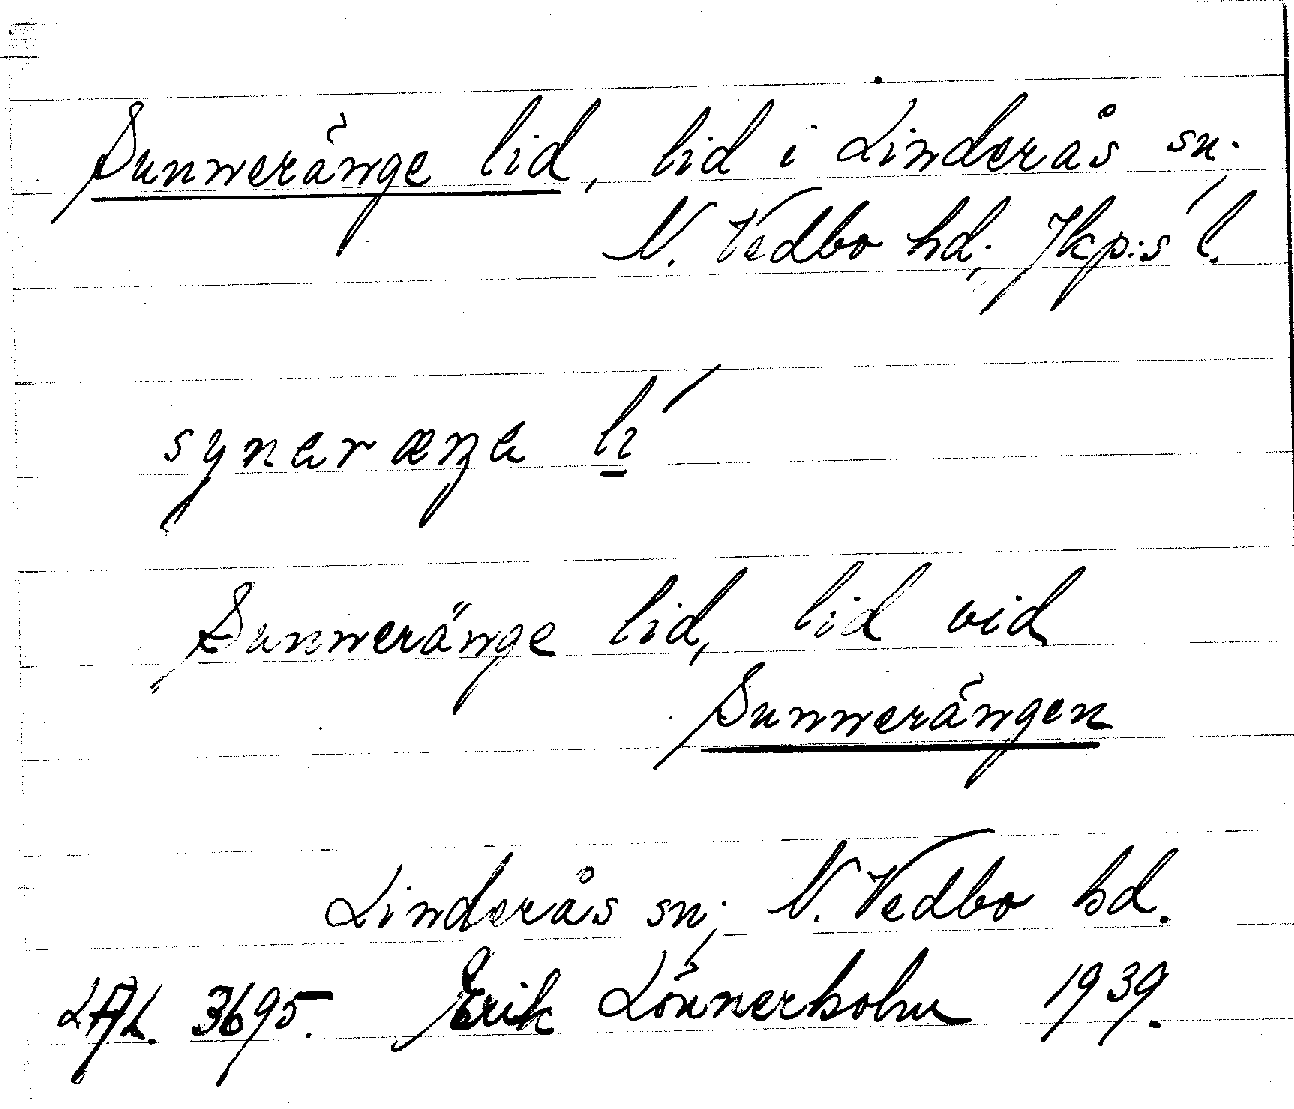 Sunneränge lid, lid i Linderås sn.
N. Vedbo hd; Jkp:s l.
synaræŋa lı
Sunneränge lid, lid vid
Sunnerängen
Linderås sn; N. Vedbo hd.
3695. Erik Lönnerholm 1939.